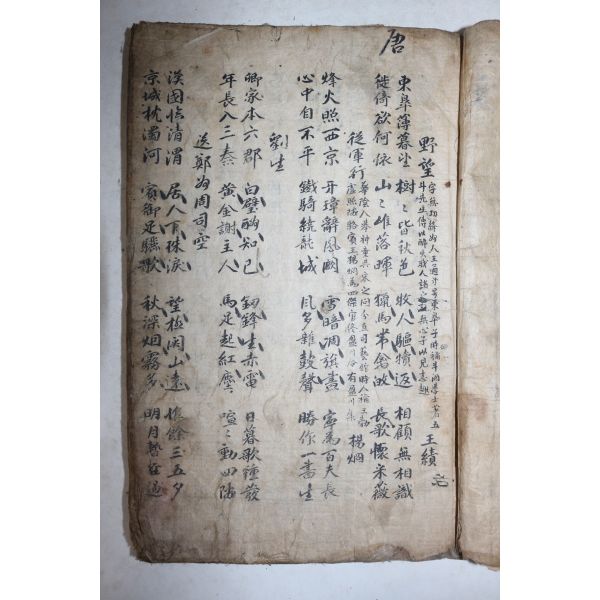 唐
野望 王績
東皐薄暮望 樹〻皆秋色 牧人驅犢返 相顧無相識
徙倚欲何依 山〻唯落暉 獵馬帶禽歸 長歌懷采薇
從軍行 楊烱
烽火照西京 牙璋辭鳳闕 雪暗凋旗畵 寧爲百夫長
心中自不平 鐵騎繞龍城 風多雜鼓聲 勝作一書生
劉生
卿家本六郡 白璧酬知己 釼鋒生赤電 日暮歌鍾發
年長入三秦 黃金謝主人 馬足起紅塵 喧〻動四隣
送鄭州周司空
漢國臨清渭 居人下珠淚 望極關山遠 惟餘三五夕
京城枕濁河 賓御促驪歌 秋深烟霧多 明月暫經過